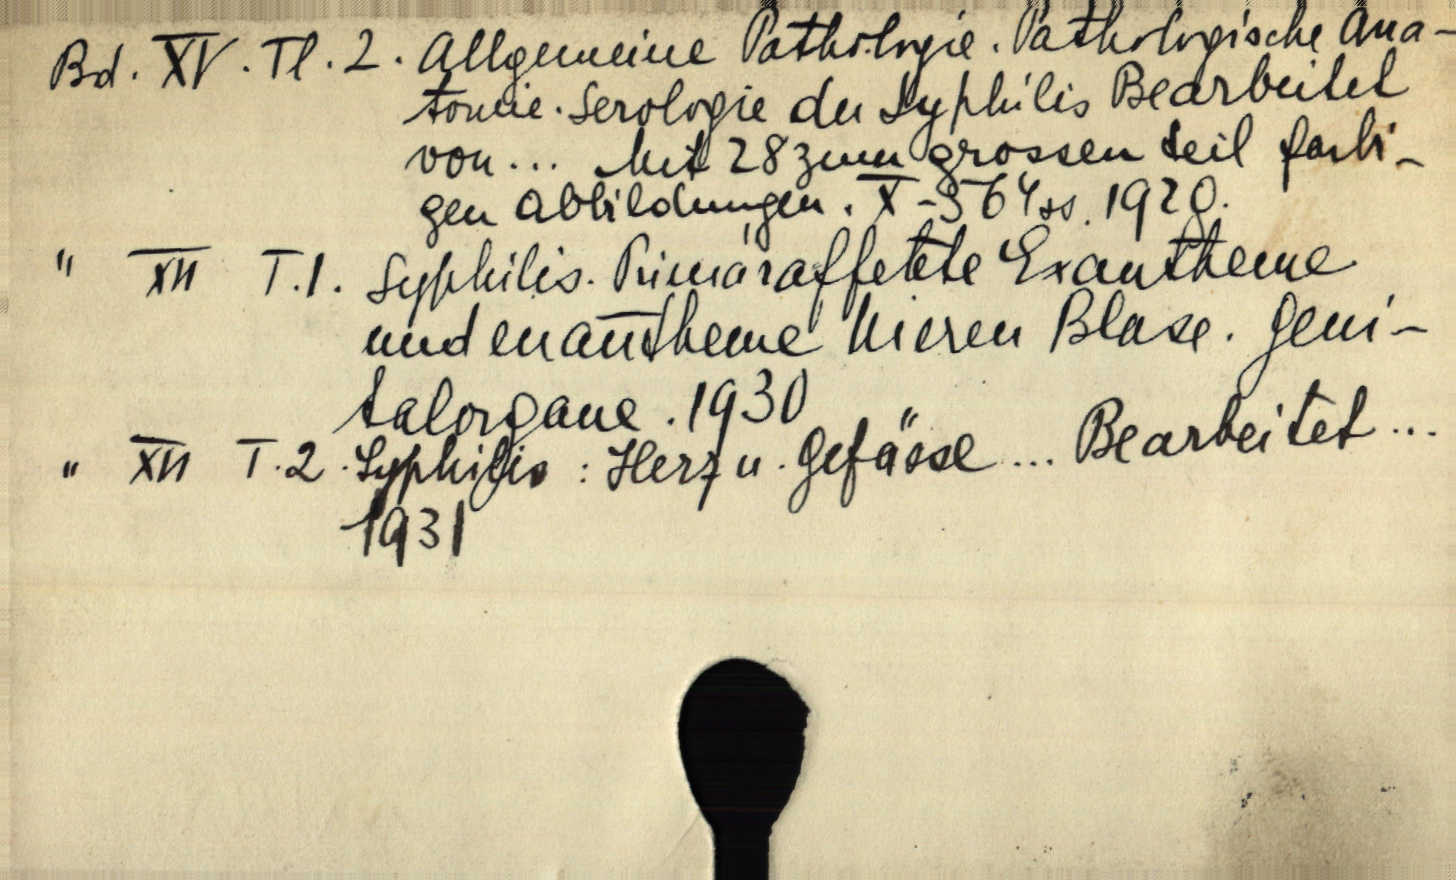 Bd. XV. Tl. 2. Allgemeine Pathologie. Pathologische Ana-
tomie. Serologie der Syphilis Bearbeitet
von... Mit 28 zum grossen teil farbi-
gen abbildungen. X-564 ss. 1920.
" XII T.1. Syphilis. Primäraffetete Exantheme
und enantheme Nieren Blase. Geni-
talorgane. 1930
" XII T.2. Syphilis : Herz u. Gefässe... Bearbeitet...
1931